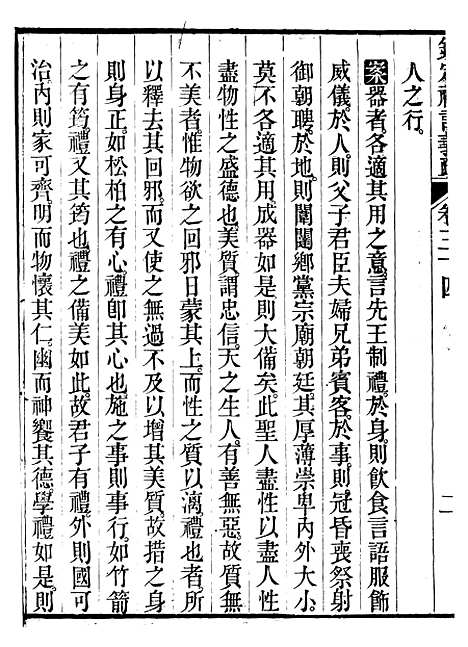 欽定禮記義疏 卷三十四 二
人之行。
案器者各適其用之意。言先王制禮。於身。則飲食言語服飾
威儀。於人。則父子君臣夫婦兄弟賓客。於事。則冠昏喪祭射
御朝聘。於地。則閨闥鄉黨宗廟朝廷。其厚薄崇卑內外大小。
莫不各適其用。成器如是。則大備矣。此聖人盡性以盡人性
盡物性之盛德也。美質。謂忠信。天之生人。有善無惡。故質無
不美者。惟物欲之回邪日蒙其上。而性之質以漓。禮也者。所
以釋去其回邪。而又使之無過不及以增其美質。故措之身
則身正。如松柏之有心。禮卽其心也。施之事則事行。如竹箭
之有筠。禮又其筠也。禮之備美如此。故君子有禮。外則國可
治。內則家可齊。明而物懷其仁。幽而神饗其德。學禮如是。則